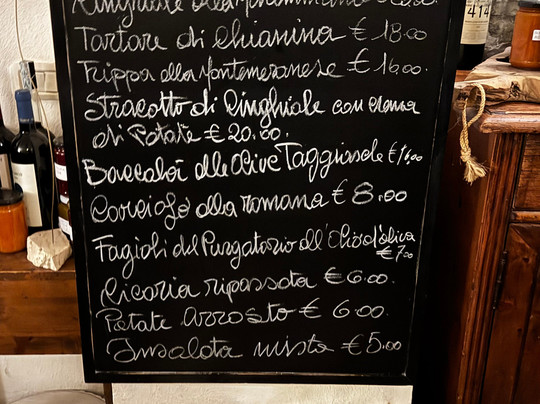 Cinghiale alla
Tartare di Chianina € 18.00
Trippa alla Montemeranese € 16.00.
Stracotto di Cinghiale con crema
di Patate € 20.00.
Baccalà alle Olive Taggiasche €
Carciofo alla romana € 8.00
Fagioli del Purgatorio all'Olio d'oliva
€ 7.00
Cicoria ripassata € 6.00.
Patate Arrosto € 6.00.
Insalata mista € 5.00
414